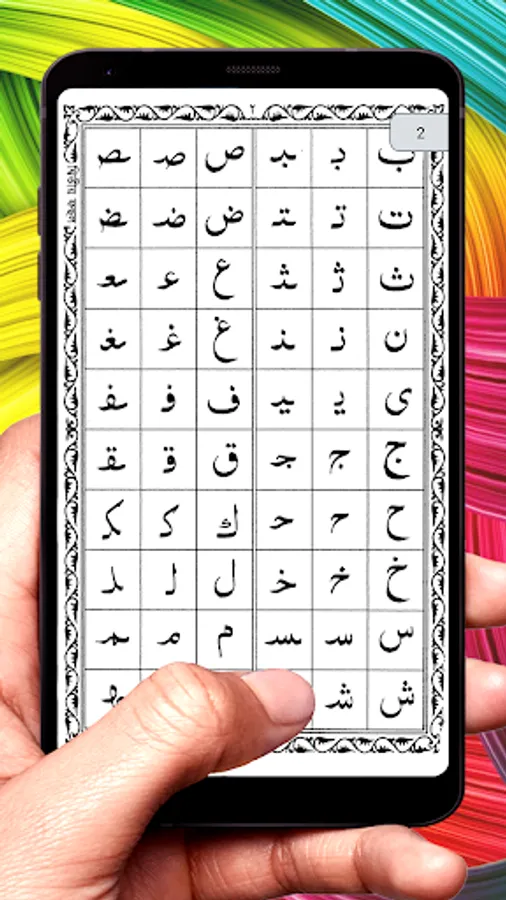 ٢
2
ب بـ ـبـ ص صـ ـصـ
ت تـ ـتـ ض ضـ ـضـ
ث ثـ ـثـ ع عـ ـعـ
ن نـ ـنـ غ غـ ـغـ
ى يـ ـيـ ف فـ ـفـ
ج جـ ـجـ ق قـ ـقـ
ح حـ ـحـ ك كـ ـكـ
خ خـ ـخـ ل لـ ـلـ
س سـ ـسـ م مـ ـمـ
ش شـ ـهـ